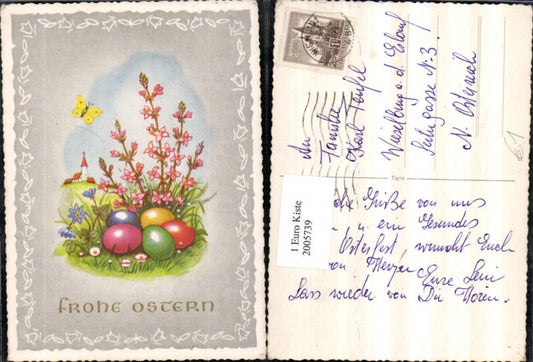 FROHE OSTERN
An
Familie
Karl
Wieselburg a. d. Erlauf
N. Österreich
1 Euro Kiste
2005739
Grüße von uns
u. ein Gesundes
Osterfest, wünscht Euch
von Herzen Eure Leni
Lass wieder von Dir Hören.